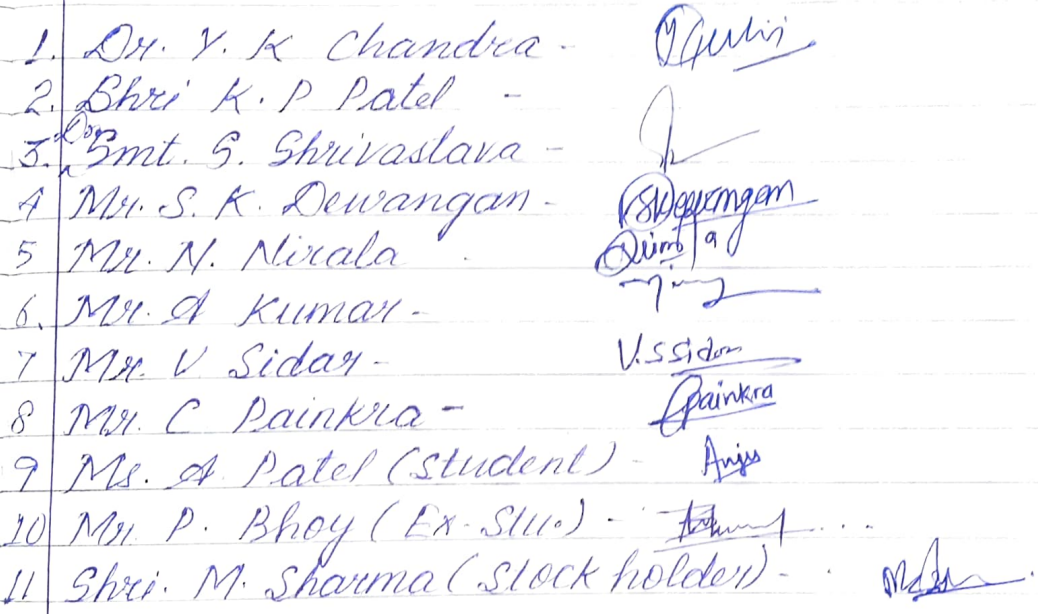 1. Dr. Y. K Chandra -
2. Shri K. P Patel -
3. Dr. Smt. S. Shrivastava -
4 Mr. S. K. Dewangan - SKDewangan
5 Mr. N. Nirala
6. Mr. A Kumar -
7 Mr. V Sidar - V.S Sidar
8 Mr. C Painkra - Painkra
9 Ms. A Patel (Student) - Anju
10 Mr. P. Bhoy (Ex-Stu.) -
11 Shri. M. Sharma (Stock holder) -